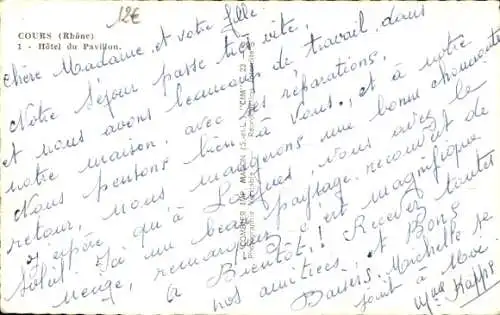 COURS (Rhône)
1 - Hôtel du Pavillon.
12€
Chère Madame, et votre fille
Notre Séjour passe très vite,
et nous avons beaucoup de travail dans
notre maison, avec les réparations,
Nous pensons bien à Vous, et à notre
retour, nous mangerons une bonne choucroute
J'espère qu'à Vous avez le
Soleil. Ici un beau paysage recouvert de
neige, remarquez c'est magnifique
a Bientôt, Recevez toutes
nos amitiées, et Bons
Baisers. Michelle se
joint à Moi
Mme Kapps
COMBIER IMP. MACON (S.-et-L.) "CIM"